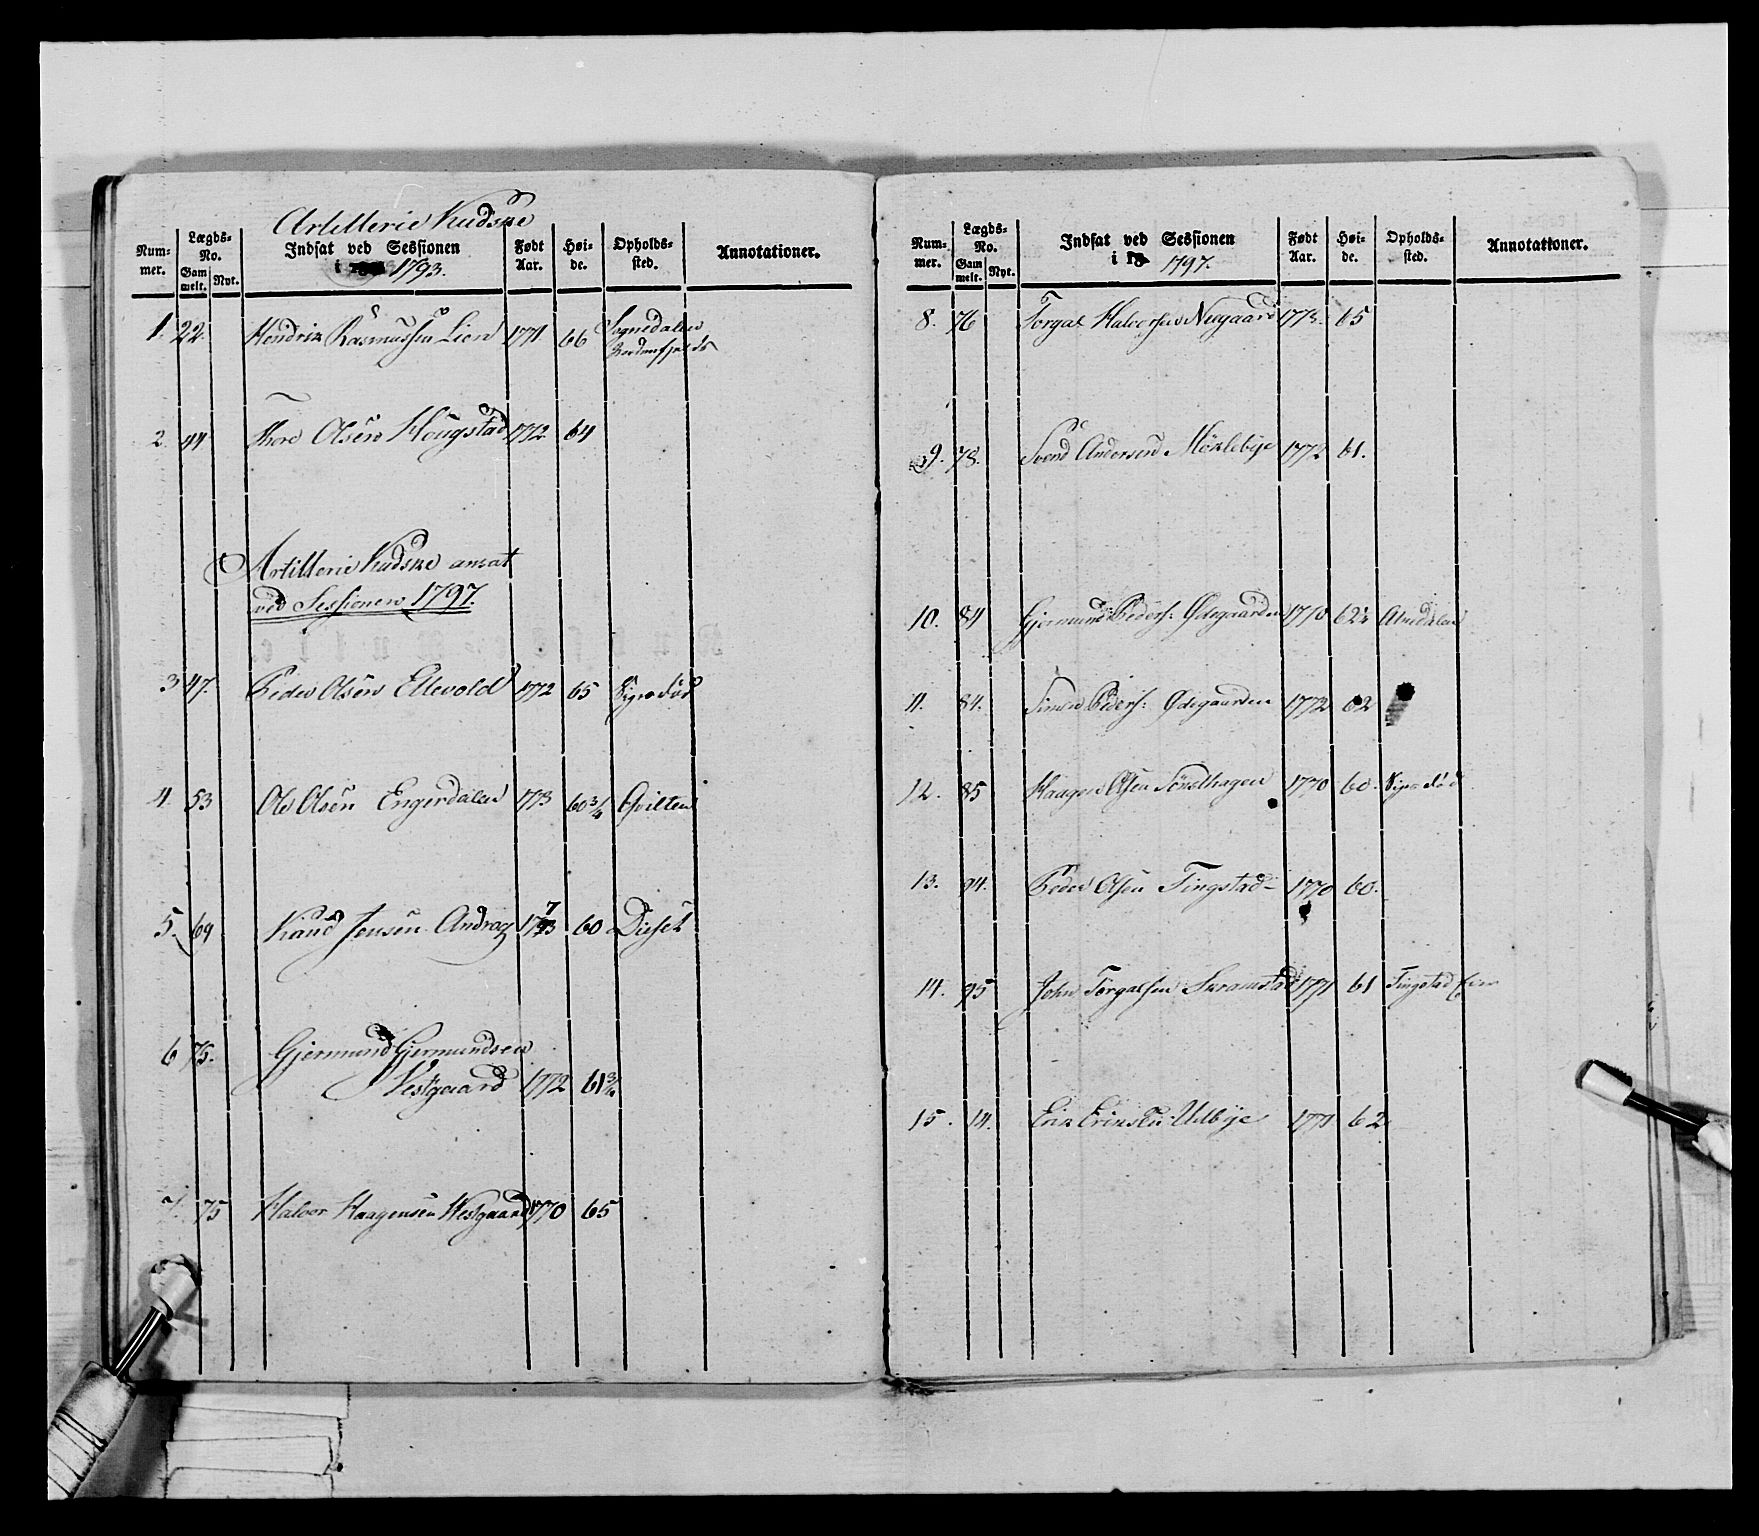 Artillerie Kudske
Num- mer. Lægds- No. Gam melt. Nyt. Indsat ved Sessionen i 1793. Født Aar. Høi- de. Opholds- sted. Annotationer.
1. 22. Hendrik Rasmussen Lien 1771 66 Sognedalen
Nordenfjelds
2. 44 Thore Olsen Hougstad 1772 64
Artillerie Kudske ansat
ved Sessionen 1797.
3 47. Peder Olsen Ellevold 1772 65 Sygnedød
4. 53 Ole Olsen Engerdalen 1773 60 3/4 Qvilten
5. 69 Knud Jensen Andraa 1773 60 Dieset
6 75. Gjermund Gjermundsen
Westgaard 1772 61 3/4
7. 75 Halvor Haagensen Westgaard 1770 65
Num- mer. Lægds- No. Gam melt. Nyt. Indsat ved Sessionen i 1797. Født Aar. Høi- de. Opholds- sted. Annotationer.
8. 76 Torgal Halvorsen Neegaard 1773. 65
9. 78. Svend Andersen Møklebye 1772 61.
10. 84 Gjermund Peders: Ødegaarden 1770 62½ Aamodalen
11. 84. Simen Peders: Ødegaarden 1772 62
12. 85 Haagen Olsen Sønsthagen 1770 60.
13. 94. Peder Olsen Tingstad 1770 60.
14. 95 John Torgalsen Skramstad 1771 61 Tingstad Eier
15. 14. Erik Eriksen Udbye 1771 62